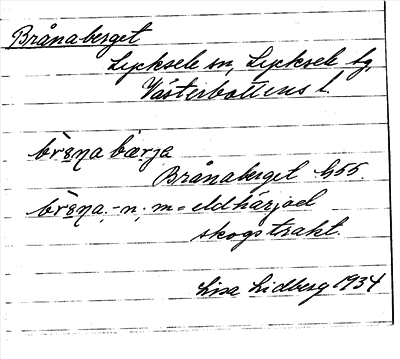 Brånaberget
Lycksele sn, Lycksele tg.
Västerbottens l.
bȣ̀rna bærja
Brånaberget h55.
-n; m = eldhärjad
skogstrakt.
Lisa Lidberg 1934